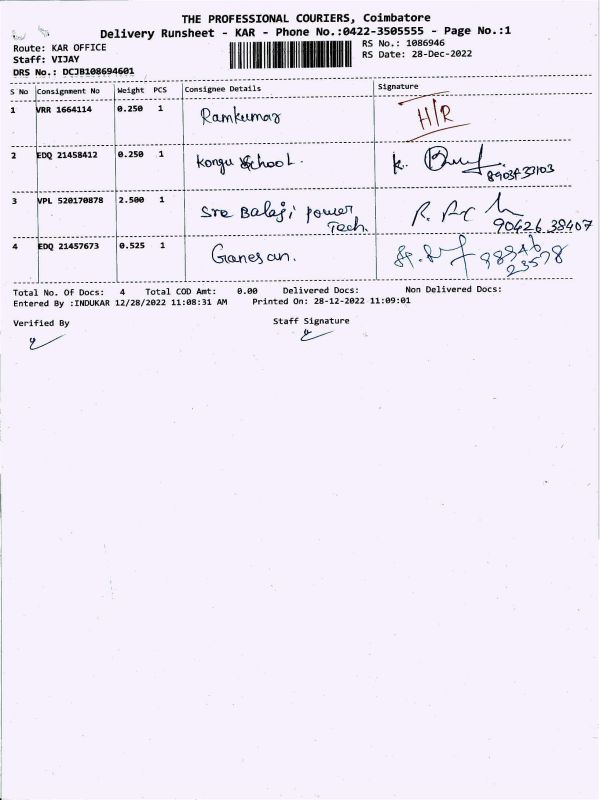 THE PROFESSIONAL COURIERS, Coimbatore
Delivery Runsheet - KAR - Phone No.:0422-3505555 - Page No.:1
Route: KAR OFFICE
RS No.: 1086946
Staff: VIJAY
RS Date: 28-Dec-2022
DRS No.: DCJB108694601
S No Consignment No Weight PCS Consignee Details Signature
1 VRR 1664114 0.250 1 Ramkumar H/R
2 EDQ 21458412 0.250 1 Kongu School. K.
3 VPL 520170878 2.500 1 Sre Balaji power Tech. 90426 38407
4 EDQ 21457673 0.525 1 Ganesan.
Total No. Of Docs: 4 Total COD Amt: 0.00 Delivered Docs: Non Delivered Docs:
Entered By :INDUKAR 12/28/2022 11:08:31 AM Printed On: 28-12-2022 11:09:01
Verified By Staff Signature